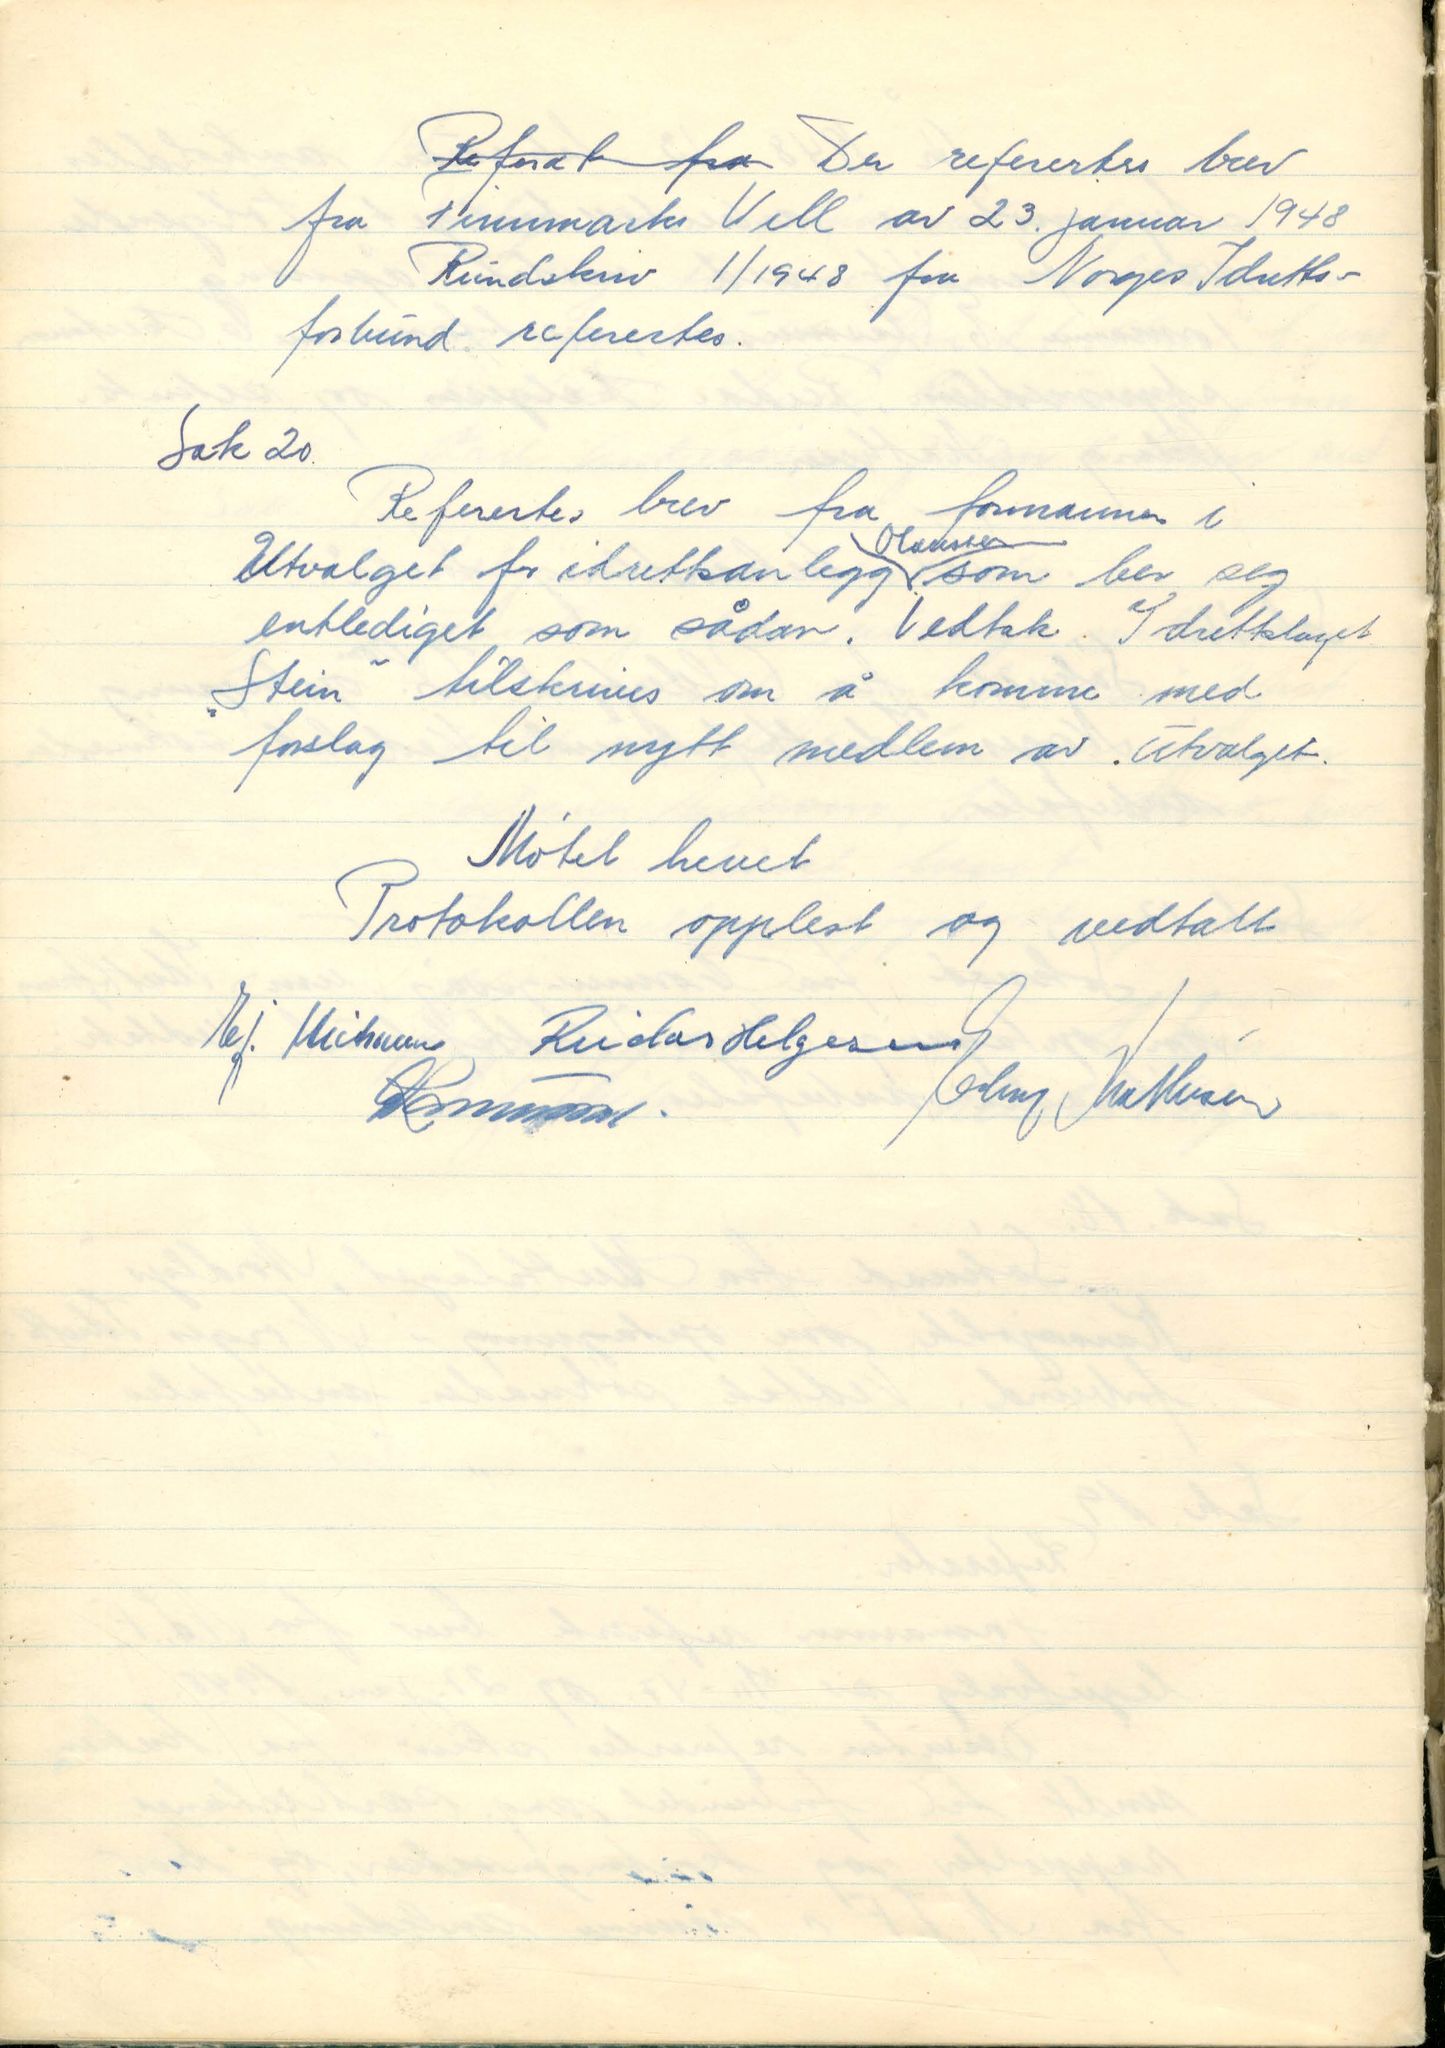 Referat fra Der refertes brev
fra Finnmarks Vell av 23. januar 1948
Rundskriv 1/1948 fra Norges Idretts-
forbund refertes.
Sak 20.
Refertes brev fra formannen i
Olaussen
Utvalget for idrettsanlegg som ber seg
entlediget som sådan. Vedtak. Idrettslaget
„Stein" tilskrives om å komme med
forslag til nytt medlem av Utvalget.
Møtet hevet
Protokollen opplest og vedtatt
Reidar Helgesen
Erling Mathisen